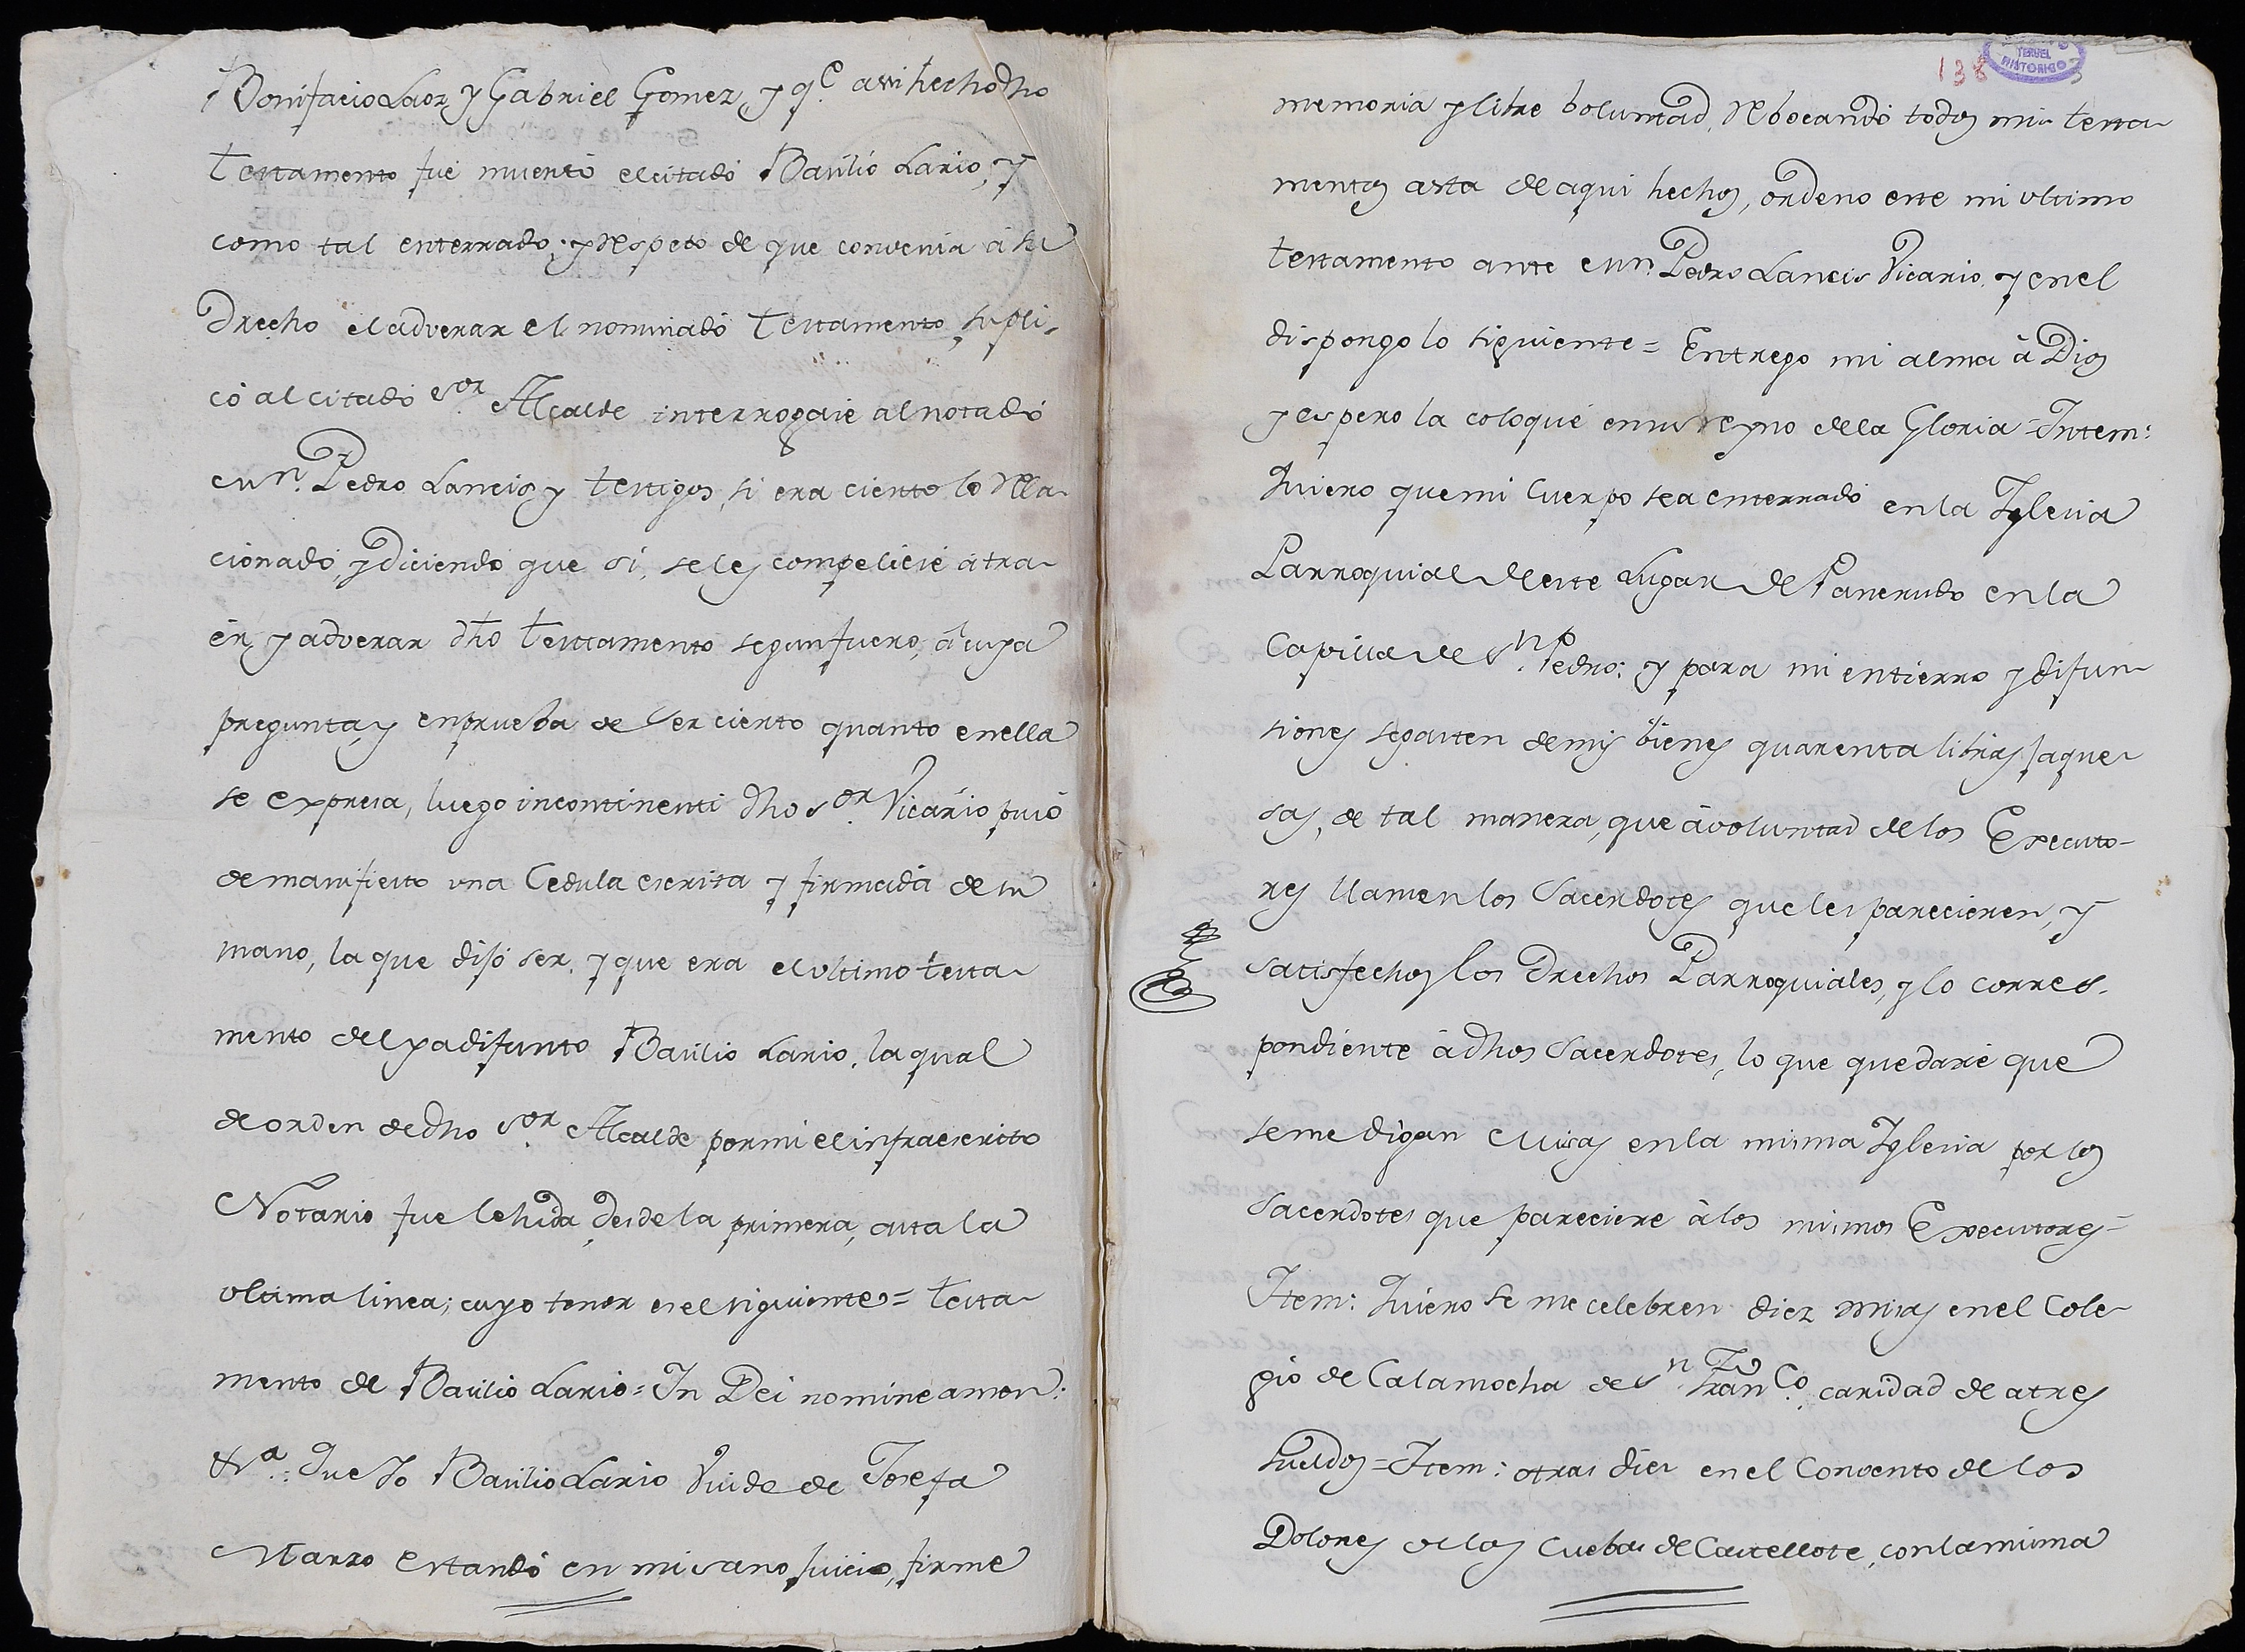 Bonifacio Laoz, y Gabriel Gomez, y qe. assi hecho dho
testamento fué muerto el citado Basilio Lario, y
como tal enterrado; y respeto de que convenia à su
Drecho el adverar el nominado testamento, supli-
có al citado Sor. Alcalde interrogase al notado
Mn. Pedro Lancis, y testigos, si era cierto lo rela-
cionado, y diciendo que si, se les compeliesé à tra-
ér, y adverar dho testamento segun fuero, à cuya
pregunta, y en prueba de ser cierto quanto en ella
se expresa, luego incontinenti dho Sor. Vicario pusó
de manifiesto una Cedula escrita y firmada de su
mano, la que dijó ser, y que era el ultimo testa-
mento del ya difunto Basilio Lario, la qual
de orden de dho Sor. Alcalde por mi el infraescrito
Notario fue lehida desde la primera, asta la
ultima linea; cuyo tenor es el siguiente = Testa-
mento de Basilio Lario = In Dei nomine amen:
&ra. Que Yo Basilio Lario Viudo de Josefa
Marzo estando en mi sano juicio, firme
138
TERUEL
HISTORICO
memoria y libre boluntad, rebocando todos mis testa-
mentos asta de aqui hechos, ordeno este mi ultimo
testamento ante Mn. Pedro Lancis Vicario, y en el
dispongo lo siguiente = Entrego mi alma à Dios
y espero la coloqué en su reyno de la Gloria = Intem:
Quiero que mi Cuerpo sea enterrado en la Iglesia
Parroquial de este Lugar de Pancrudo en la
Capilla de Sn. Pedro: y para mi entierro y difun-
siones se gasten de mis bienes quarenta libras jaque-
sas, de tal manera, que à voluntad de los Executo-
res llamen los Sacerdotes que les parecieren, y
satisfechos los Drechos Parroquiales, y lo corres-
pondiente à dhos Sacerdotes, lo que quedaré que
se me digan Misas en la misma Iglesia por los
Sacerdotes que pareciere à los mismos Executores =
Item: Quiero se me celebren diez misas en el Cole-
gio de Calamocha de Sn. Franco. caridad de a tres
sueldos = Item: otras diez en el Convento de los
Dolores de las Cuebas de Castellote, con la misma